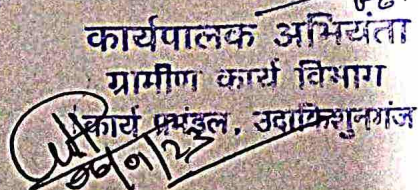 कार्यपालक अभियंता
ग्रामीण कार्य विभाग
कार्य प्रमंडल, उदाकिशुनगंज